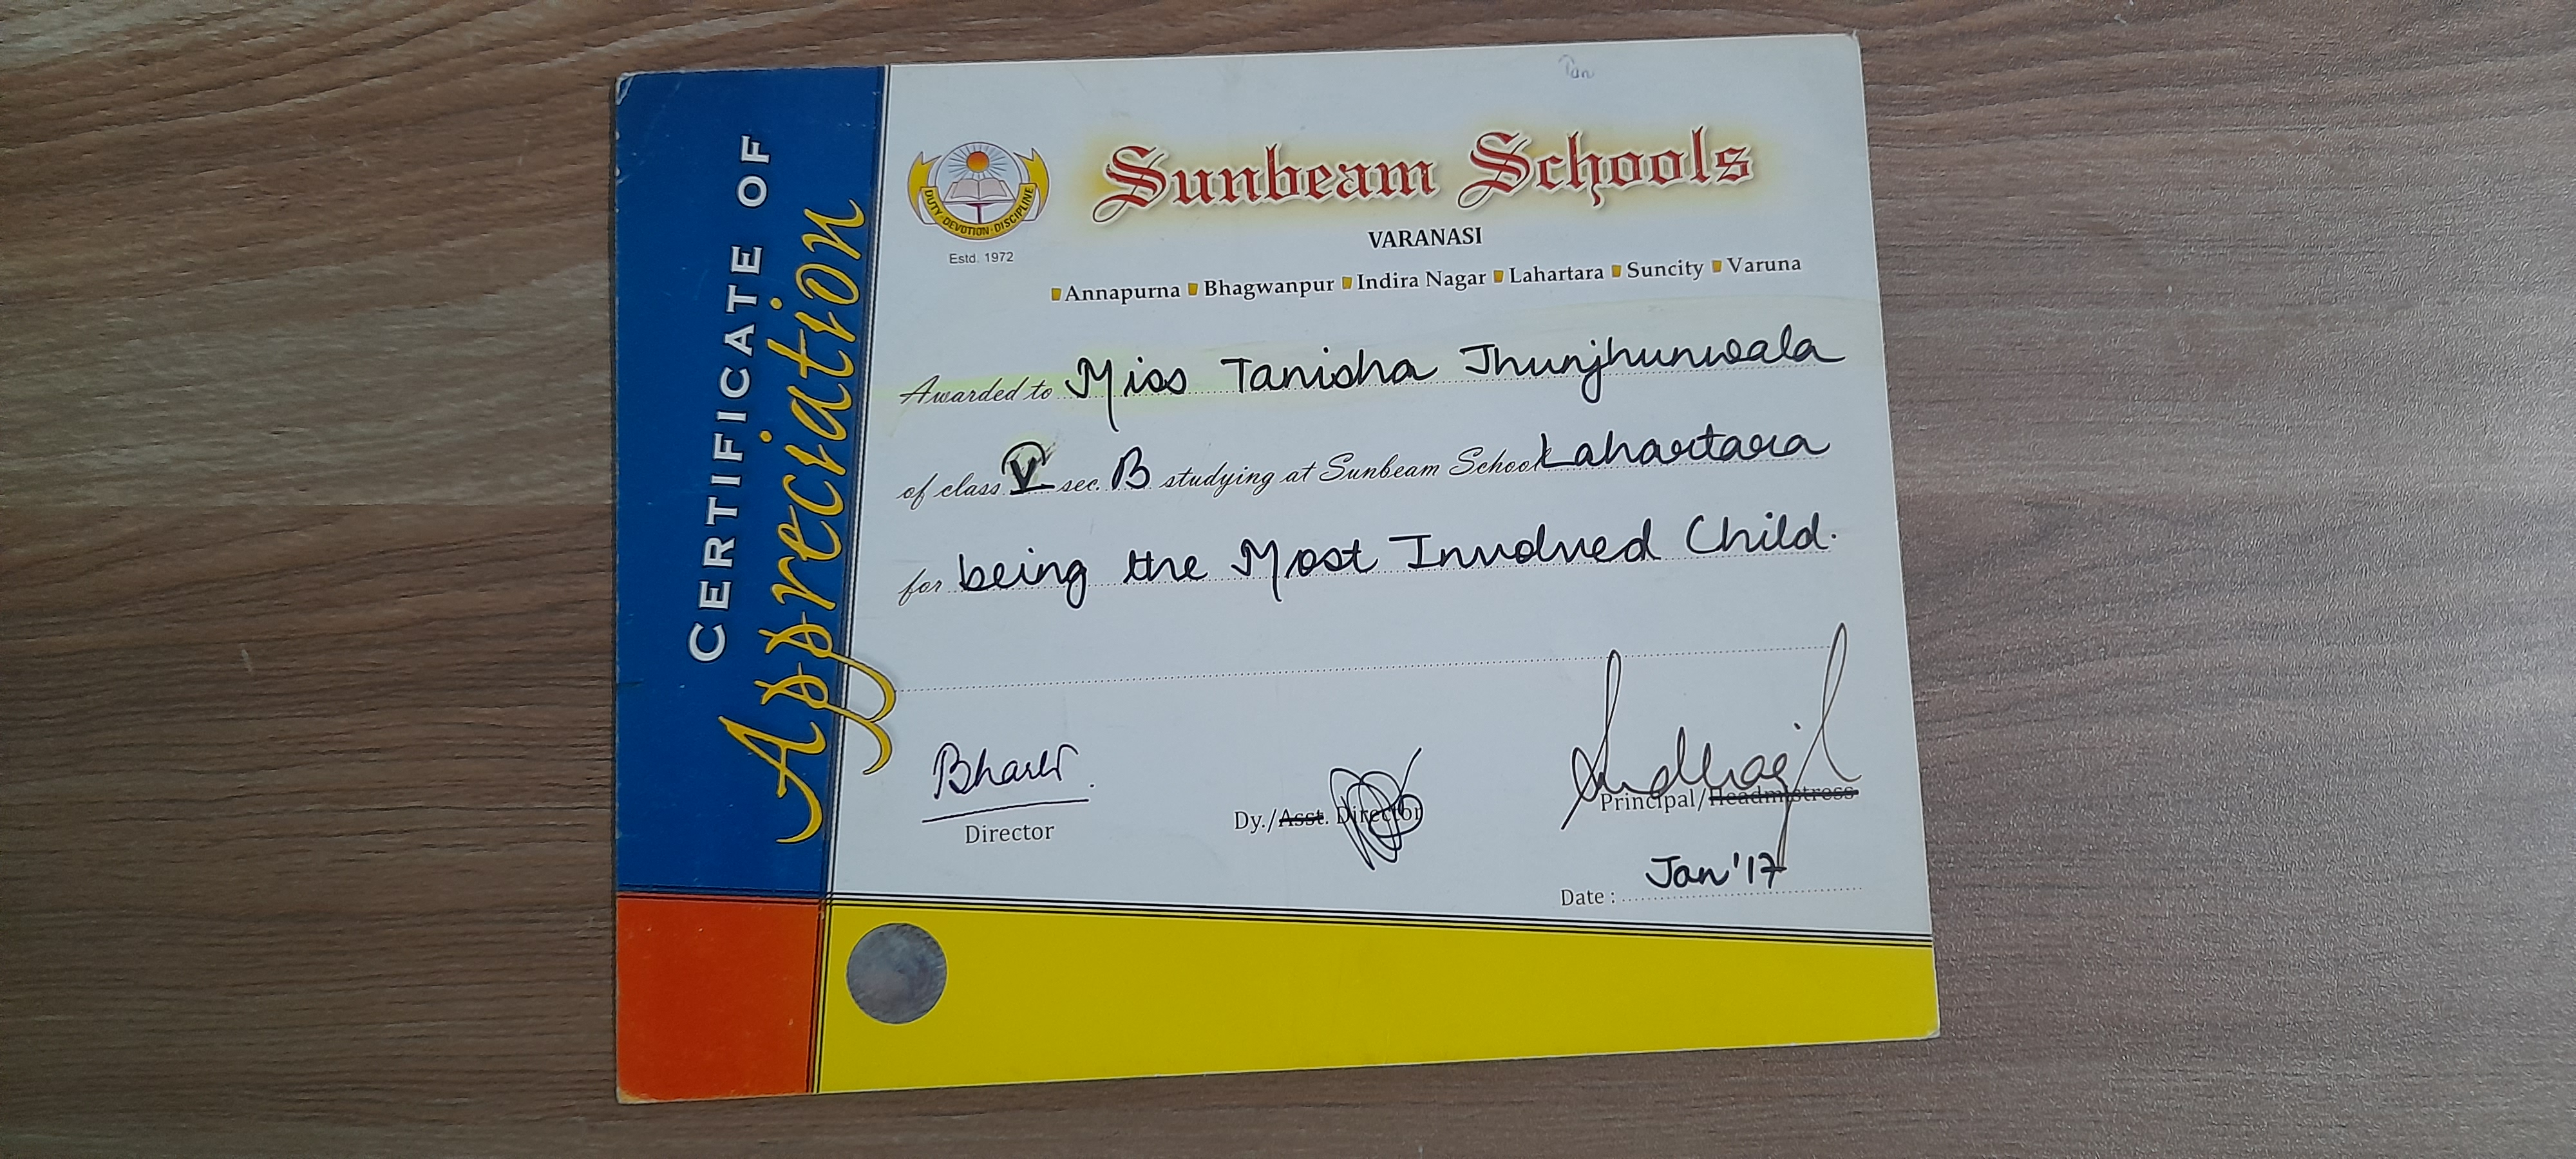 Tan
CERTIFICATE OF
Appreciation
DUTY · DEVOTION · DISCIPLINE
Estd. 1972
Sunbeam Schools
VARANASI
Annapurna Bhagwanpur Indira Nagar Lahartara Suncity Varuna
Awarded to Miss Tanisha Jhunjhunwala
of class V sec. B studying at Sunbeam School Lahartara
for being the Most Involved Child.
Director
Dy./Asst. Director
Principal/Headmistress
Date : Jan'17